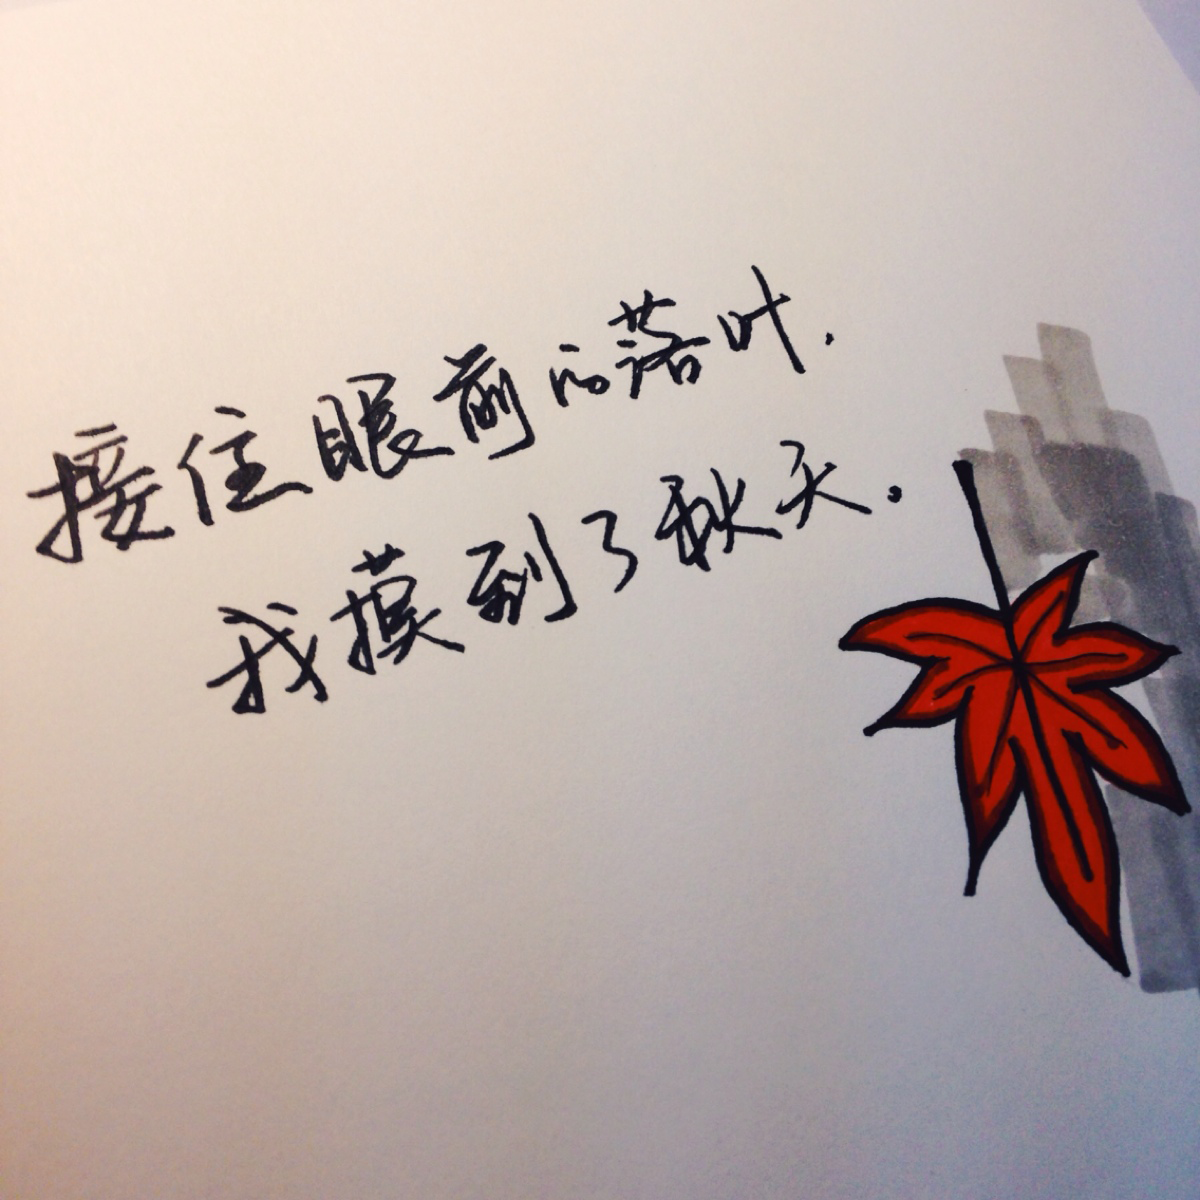 接住眼前的落叶.
我摸到了秋天。